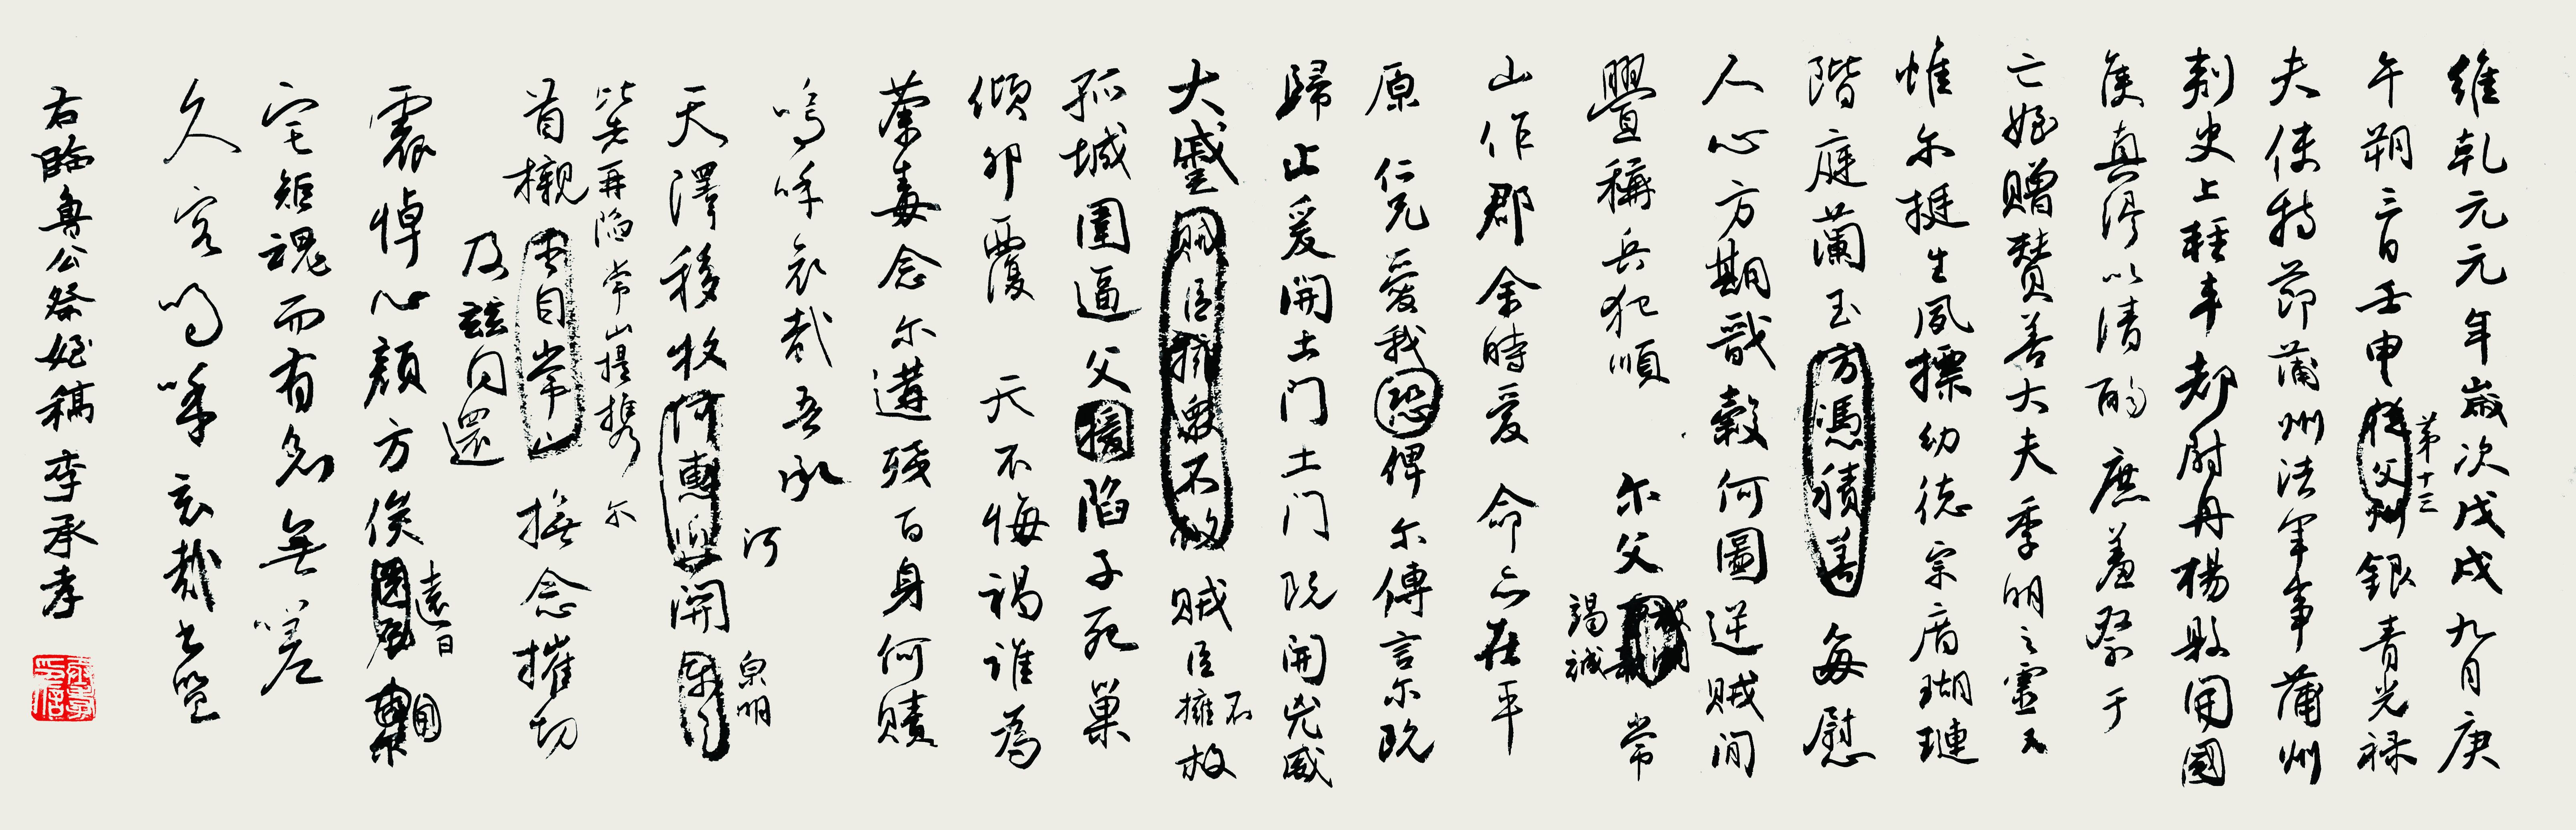 維乾元元年歲次戊戌九月庚
午朔三日壬申
第十三
從父
銀青光祿
夫使持節蒲州諸軍事蒲州
刺史上輕車都尉丹楊縣開國
侯真卿以清酌庶羞祭于
亡姪贈贊善大夫季明之靈
惟爾挺生夙摽幼德宗廟瑚璉
階庭蘭玉方憑積善每慰
人心方期戩穀何圖逆賊間
釁稱兵犯順爾父
竭誠
常
山作郡余時受命亦在平
原仁兄愛我恐俾爾傳言爾既
歸止爰開土门土门既開兇威
大蹙賊臣擁眾不救賊臣
不
擁救
孤城圍逼父擒陷子死巢
傾卵覆天不悔禍誰為
荼毒念爾遘殘百身何贖
嗚呼哀哉吾承
天澤移牧河
河
關
泉明
比者再陷常山提携爾
首櫬
自常山
及茲同還
撫念摧切
震悼心顏方俟
遠日
宅兆魂而有知無嗟
久客嗚呼哀哉尚饗
右臨魯公祭姪稿李承孝